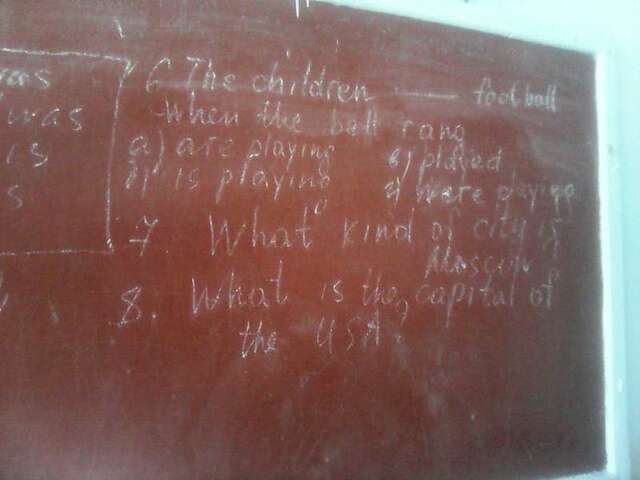 was
was
is
s
6 The children ——— football
when the bell rang
a) are playing в) played
б) is playing г) were playing
7 What kind of city is
Moscow?
8. What is the capital of
the USA?